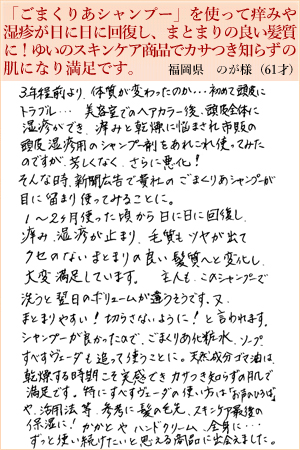 「ごまくりあシャンプー」を使って痒みや
湿疹が日に日に回復し、まとまりの良い髪質
に！ゆいのスキンケア商品でカサつき知らずの
肌になり満足です。 福岡県 のが様（61才）
3年程前より、体質が変わったのか…初めて頭皮に
トラブル… 美容室でのヘアカラー後、頭皮全体に
湿疹ができ、痒みと乾燥に悩まされ市販の
頭皮湿疹用のシャンプー剤をあれこれ使ってみた
のですが、芳しくなく、さらに悪化！
そんな時、新聞広告で貴社のごまくりあシャンプーが
目に留まり使ってみることに。
1〜2ヶ月使った頃から日に日に回復し、
痒み、湿疹が止まり、毛質もツヤが出て
クセのないまとまりの良い髪質へと変化し、
大変満足しています。 主人も、このシャンプーで
洗うと翌日のボリュームが違うそうです。又、
まとまりやすい！切らさないように！と言われます。
シャンプーが良かったので、ごまくりあ化粧水、ソープ、
すべすヴェーダも追って使うことに。天然成分ゴマ油は、
乾燥する時期こそ実感でき カサつき知らずの肌で
満足です。特にすべすヴェーダの使い方は「お声のひろば」
や、活用法等、参考に 髪の毛先、スキンケア最後の
保湿に！かかとやハンドクリーム、全身に…
ずっと使い続けたいと思える商品に出会えました。